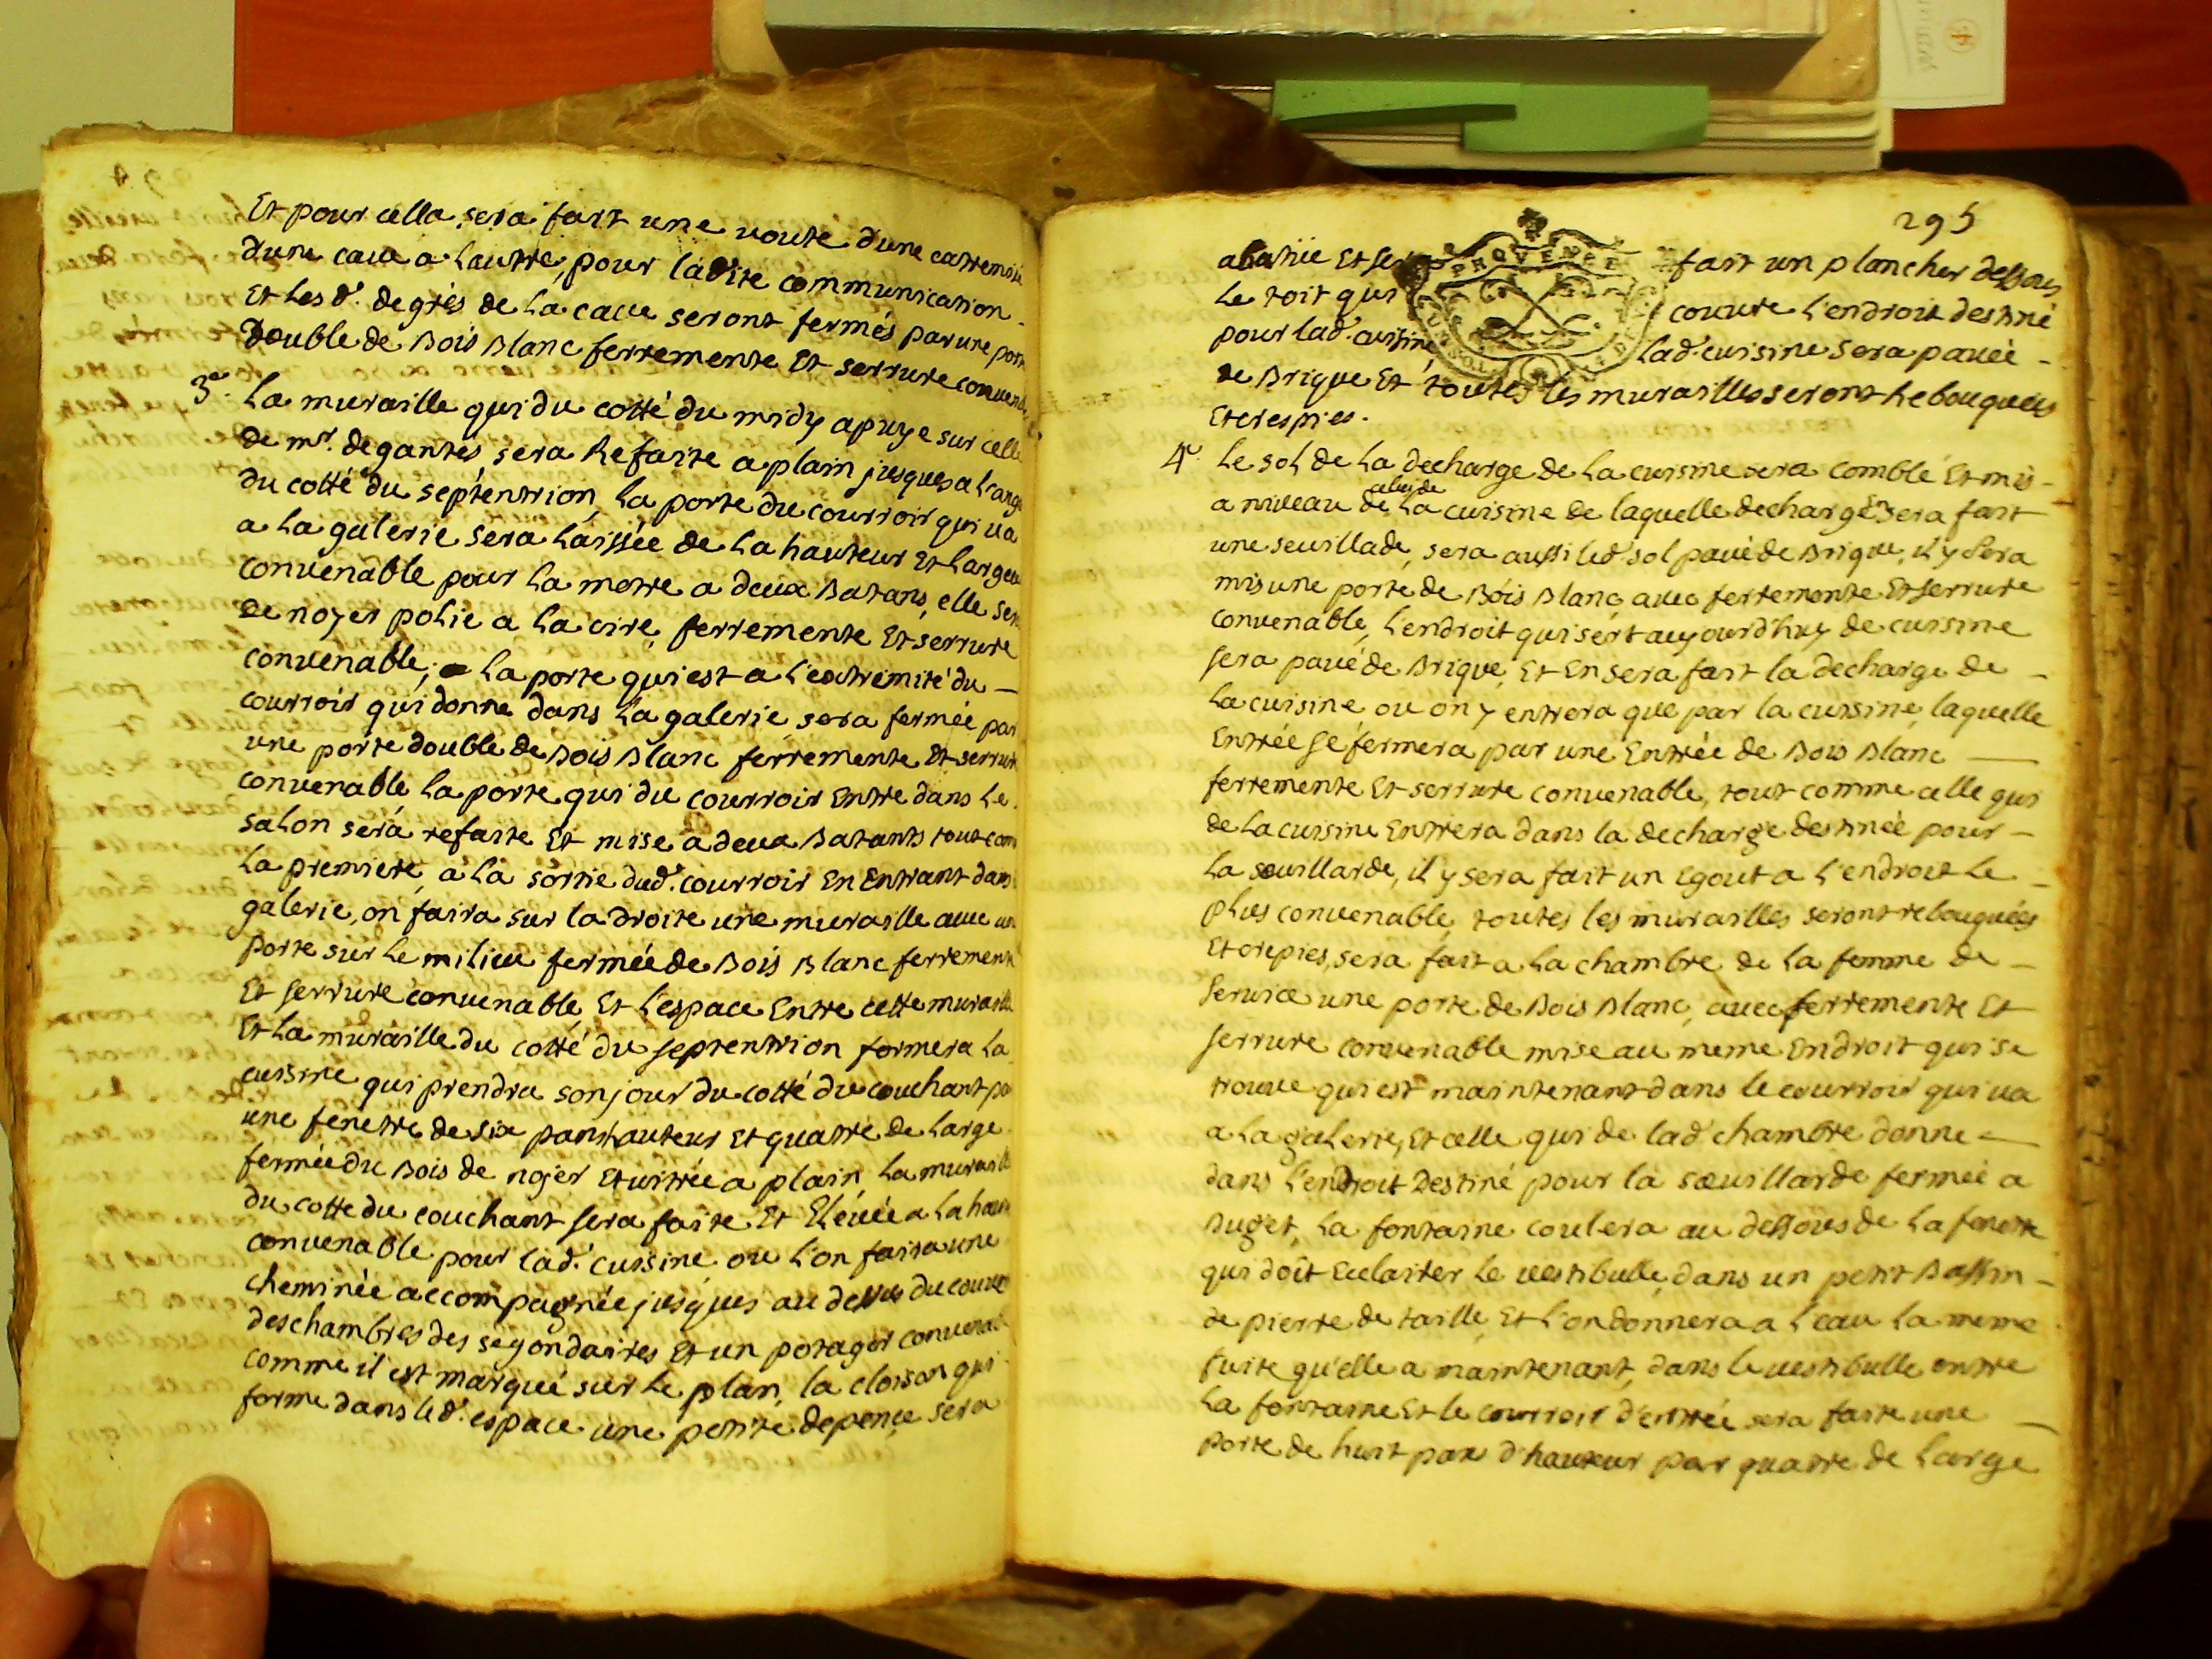 Et pour cella sera fait une voute d'une extremité
d'une cave a l'autre, pour ladite communication
Et les d.s degrés de la cave seront fermés par une porte
Double de Bois Blanc ferremente Et serrure convenable
3e. La muraille qui du cotté du midy apuye sur celle
de mr. degantés sera Refaite a plain jusques a l'angle
du cotté du septentrion, la porte du courroir qui va
a la galerie sera laissée de la hauteur Et largeur
convenable pour la mettre a deux Batans, elle sera
de noyer polie a la cire, ferremente Et serrure
convenable; la porte qui est a l'extremité du
courroir qui donne dans la galerie sera fermée par
une porte double de Bois Blanc ferremente Et serrure
convenable la porte qui du courroir Entre dans le
salon sera refaite Et mise a deux Batants tout com
la premiere, a la sortie dud. courroir En Entrant dans
galerie, on faira sur la droite une muraille avec un
porte sur le milieu fermée de Bois Blanc ferremente
Et serrure convenable Et l'espace Entre cette muraille
Et la muraille du cotté du septentrion formera la
cuisine qui prendra son jour du cotté du couchant par
une fenetre de six pans hauteur Et quatre de large
fermée du Bois de nojer Et vitrée a plain la muraille
du cotté du couchant sera faite Et Elévée a la hauteur
convenable pour lad. cuisine ou l'on faira une
cheminée accompagnée jusques au dessus du couvert
des chambres des segondaires Et un potager convenable
comme il est marqué sur le plan, la cloison qui
forme dans led. espace une petite depence sera
295
PROVENCE
abatüe Et sera fait un plancher dessous
le toit qui couvre l'endroit destiné
pour lad. cuisine lad. cuisine sera pavée
de Brique Et toutes les murailles seront Rebouquées
Et crespies.
4e. Le sol de la decharge de la cuisine sera comblé Et mis
celuy de
a niveau de la cuisine de laquelle decharge sera fait
une seuillade, sera aussi led. sol pavé de Brique, il y sera
mis une porte de Bois Blanc avec ferremente Et serrure
convenable, l'endroit qui sert aujourd'huy de cuisine
sera pavé de Brique, Et En sera fait la decharge de
la cuisine ou on y entrera que par la cuisine, laquelle
Entrée se fermera par une Entrée de Bois Blanc
ferremente Et serrure convenable, tout comme celle qui
de la cuisine Entrera dans la decharge destinée pour
la souillarde, il y sera fait un Egout a l'endroit le
plus convenable, toutes les murailles seront rebouquées
Et crepies, sera fait a la chambre de la femme de
service une porte de Bois Blanc, avec ferremente Et
serrure convenable mise au meme Endroit qui se
trouve qui est maintenant dans le courroir qui va
a la galerie, Et celle qui de lad. chambre donne
dans l'endroit Destiné pour la souillarde fermée a
Buget, la fontaine coulera au dessous de la fenetre
qui doit Eclairer le vestibulle, dans un petit Bassin
de pierre de taille Et l'on donnera a l'eau la meme
fuite qu'elle a maintenant, dans le vestibulle entre
la fontaine Et le courroir d'entrée sera faite une
porte de huit pans d'hauteur par quatre de large